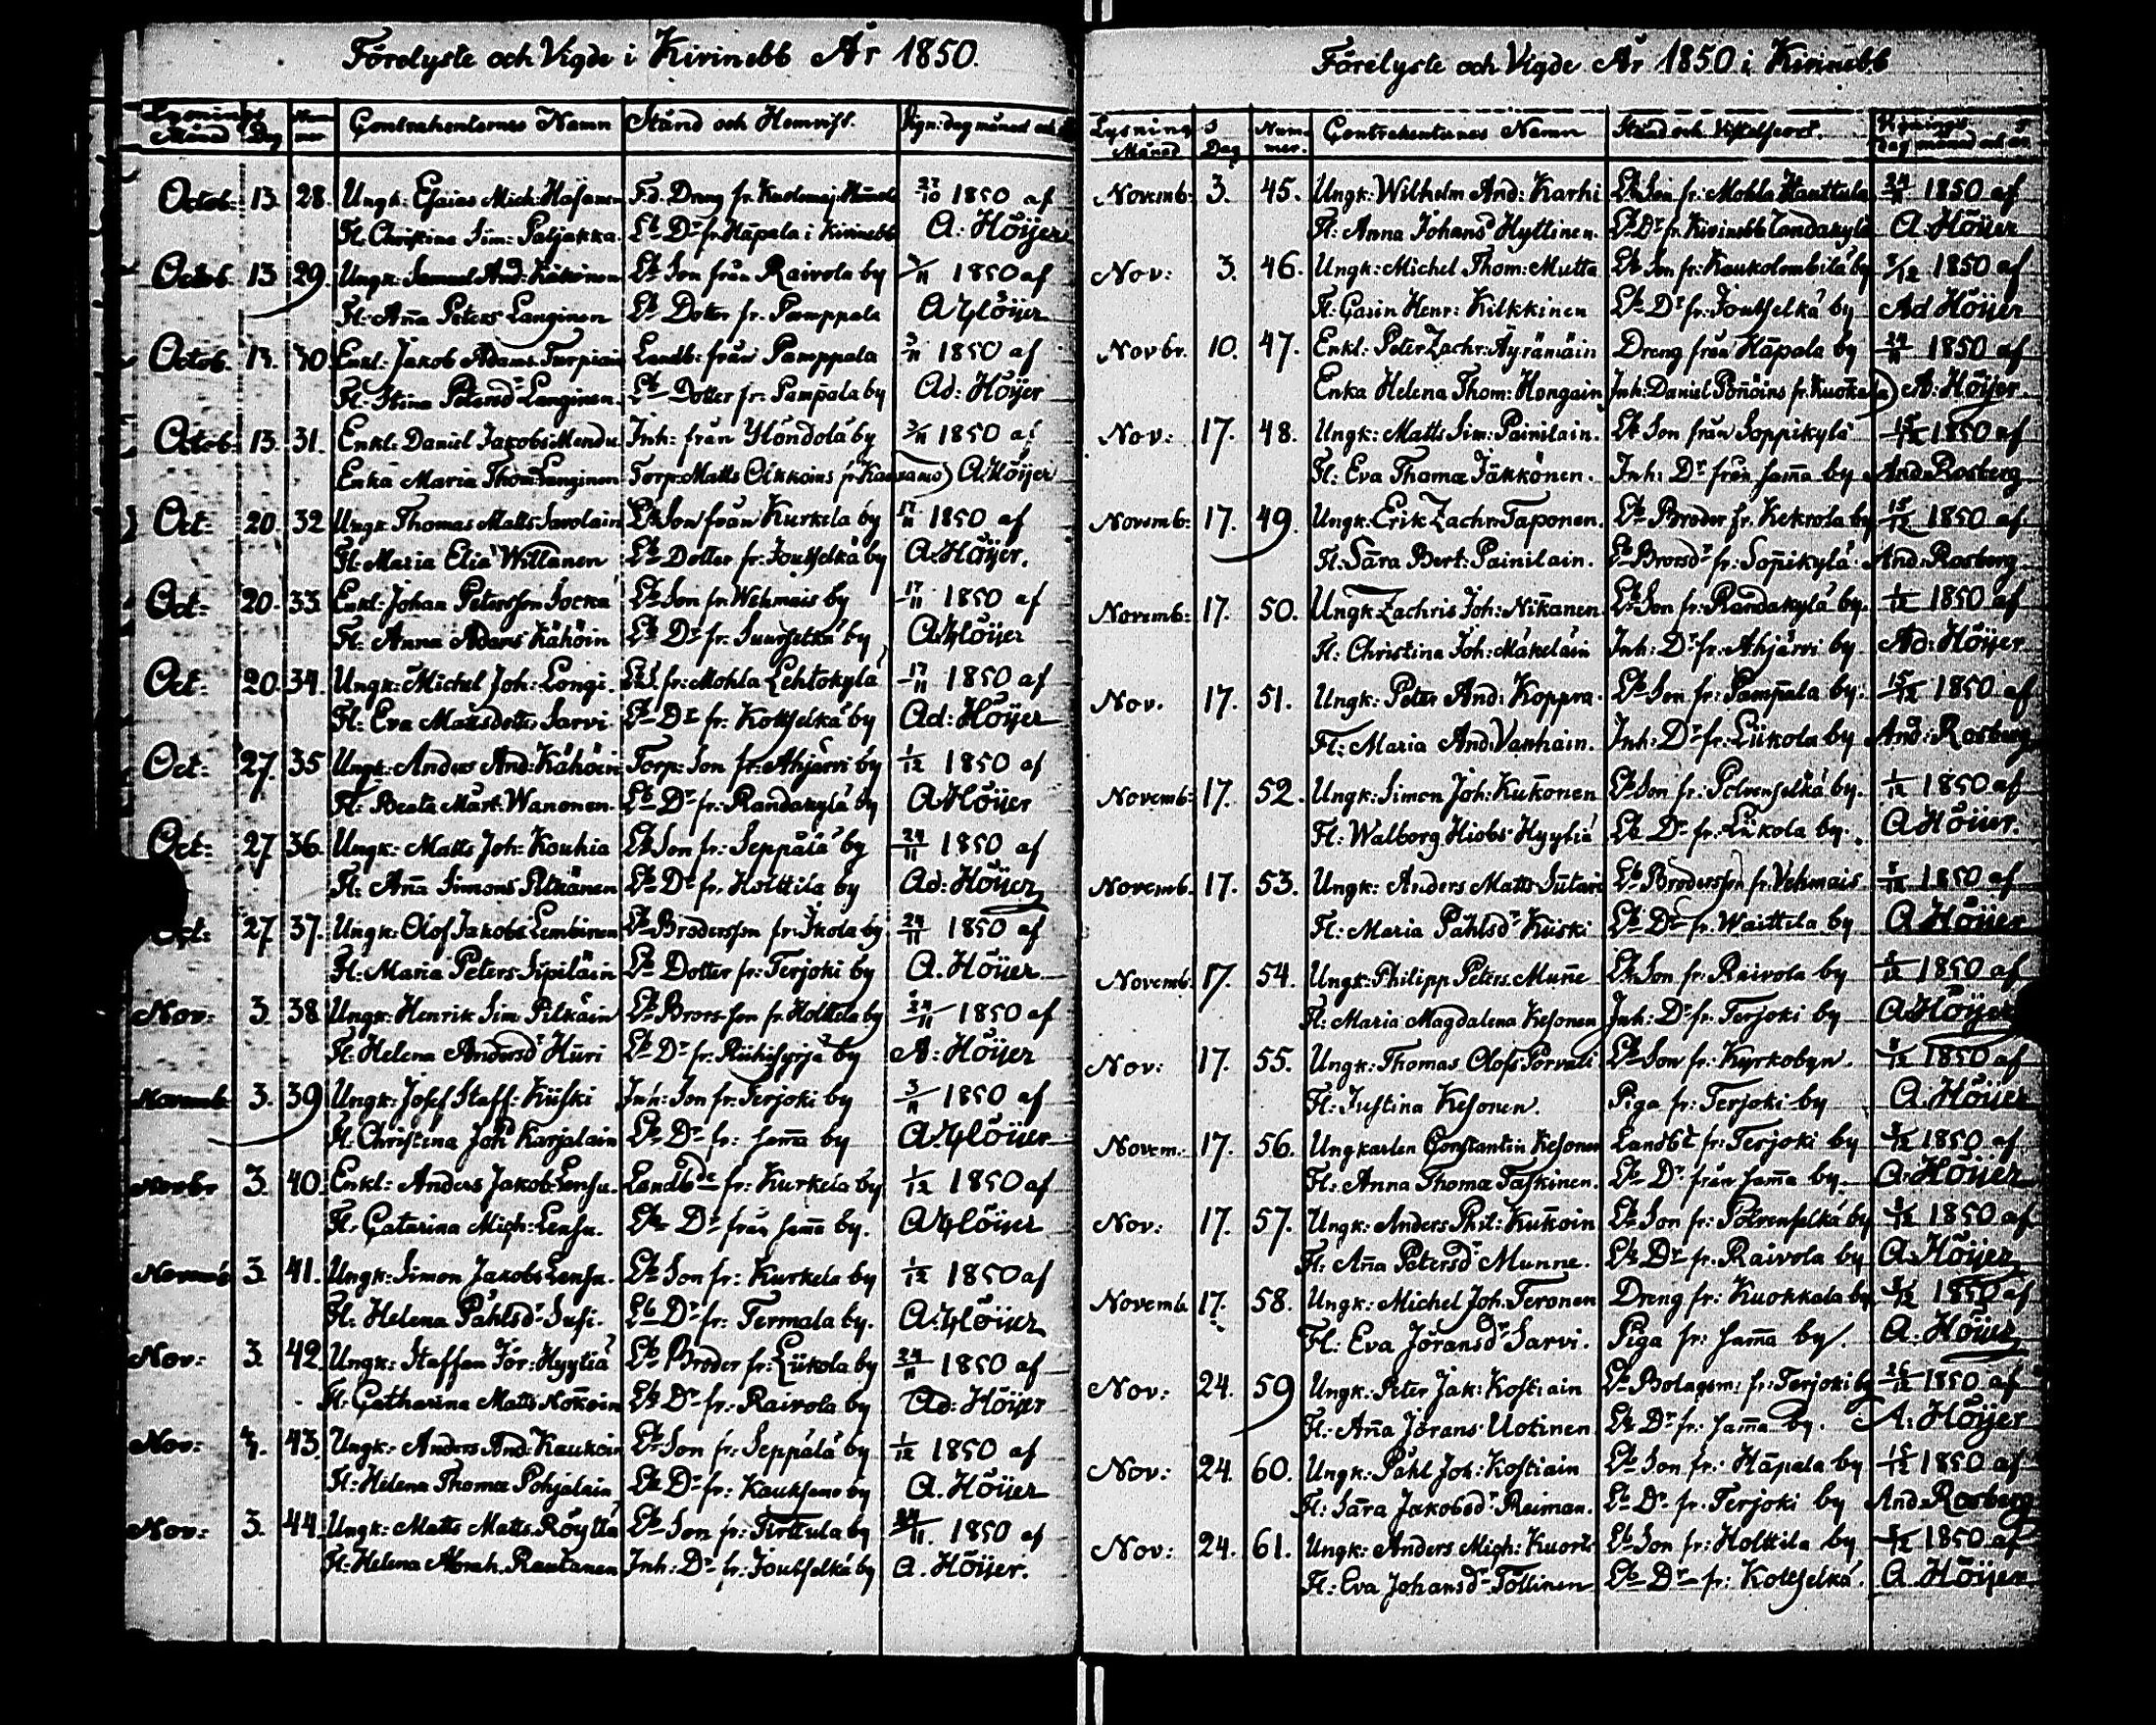 Förelyste och Vigde i Kirinebb År 1850.
Lysnings Månad Dag Nummer Contrahenternes Namn Stånd och Hemvist. Vign. dag månad och
Octob: 13 28. Ungk: Esaias Mich: Häfanen F.d. Dreng fr. 27/10 1850 af
Fl. Christina Sim: Paljakka. Lb Dr fr. Häpala i Kirinebb A: Höijer
Octob. 13 29. Ungk: Samuel And: Käkönen Lb Son från Raivola by 3/11 1850 af
Fl: Anna Peters Langinen Lb Dotter fr. Pamppala A Höijer
Octob. 13. 30 Enkl: Jakob Adams Turpiain Landb: från Pamppala 3/11 1850 af
Fl: Stina Petersd Langinen. Lb Dotter fr: Pampala by Ad: Höijer
Octob: 13. 31. Enkl: Daniel Jakobs Mendu. Inh: från Yöndölä by 3/11 1850 af
Enka Maria Thom: Langinen Torp: Matts Olkkoins fr A. Höijer
Oct: 20. 32 Ungk: Thomas Matts Savolain Lb Son från Kurkela by 17/11 1850 af
Fl: Maria Eliä Willanen Lb Dotter fr: Joutselkä by A. Höijer.
Oct: 20. 33. Enkl: Johan Petersson Socka Lb Son fr: Wehmais by 17/11 1850 af
Fl: Anna Adams Kähöin Lb Dr fr: Suurselkä by A. Höijer
Oct: 20. 34. Ungk: Michel Joh: Longi. Lb S. fr: Mohla Lehtokylä 17/11 1850 af
Fl: Eva Mattsdotter Sarvi. Lb Dr fr: Kottselkä by Ad: Höijer
Oct: 27. 35 Ungk: Anders And: Kähöin Torp: Son fr: Ahjärvi by 1/12 1850 af
Fl: Beata Märt: Wanonen. Lb Dr fr: Randakylä by A Höijer
Oct: 27 36. Ungk: Matts Joh: Kouhia Lb Son fr: Seppälä by 24/11 1850 af
Fl: Anna Simons Pitkänen Lb Dr fr. Holttila by Ad: Höijer
Oct: 27 37. Ungk: Olof Jakobs Lembinen Lb Brodersson fr: Ikola by 24/11 1850 af
Fl: Maria Peters Sipiläin Lb Dotter fr: Terjoki by A. Höijer
Nov: 3. 38. Ungk: Henrik Sim: Pitkäin Lb Brors-son fr. Holttila by 24/11 1850 af
Fl: Helena Andersd Huri Lb Dr fr: Riihisyrjä by A: Höijer
Novemb. 3. 39 Ungk: Josef Staff: Kiiski Inh: Son fr: Terjoki by 3/11 1850 af
Fl. Christina Joh Karjalain Lb Dr fr: samma by A. Höijer
Novbr 3. 40. Enkl: Anders Jakob: Lensu. Landbde fr: Kurkela by 1/12 1850 af
Fl. Catarina Mich: Lensu. Lb Dr från samma by. A Höijer
Novemb 3. 41. Ungk: Simon Jakobs Lensu. Lb Son fr: Kurkela by 1/12 1850 af
Fl: Helena Påhlsd Susi. Lb Dr fr: Termala by. A: Höijer
Nov: 3. 42. Ungk: Staffan Jör: Hyytiä Lb Broder fr: Liikola by 24/11 1850 af
Fl: Catharina Matts Kokoin Lb Dr fr: Raivola by Ad: Höijer
Nov: 3. 43. Ungk: Anders And: Kaukoin Lb Son fr: Seppälä by 1/12 1850 af
Fl: Helena Thomæ Pohjalain Lb Dr fr: Kauksamo by A. Höijer
Nov: 3. 44. Ungk: Matts Matts. Röyttä Lb Son fr: Tirttula by 24/11. 1850 af
Fl: Helena Abrah. Rautanen Inh: Dr fr: Joutselkä by A. Höijer.
Förelyste och Vigde År 1850 i Kirinebb
Lysnings Månad Dag Nummer. Contrahenternes Namn Stånd och Vistelseort. Vignings dag månad och år
Novemb: 3. 45. Ungk: Wilhelm And: Karhi Lb Son fr: Mohla Kanttula 24/11 1850 af
Fl: Anna Johans Hyttinen. Lb Dr fr. Kirinebb Landakylä A. Höijer
Nov: 3. 46. Ungk: Michel Thom: Mutta Lb Son fr: Kaukolembilä by 8/12 1850 af
Fl: Carin Henr: Kilkkinen Lb Dr fr: Joutselkä by Ad Höijer
Novbr. 10. 47. Enkl: Peter Zachr: Äyrämäin Dreng från Häpala by 24/11 1850 af
Enka Helena Thom: Hongain Inh: Daniel Ponnöins fr. Kuokala) A: Höijer.
Nov: 17. 48. Ungk: Matts Sim: Painilain. Lb Son från Soppikylä 15/12 1850 af
Fl: Eva Thomæ Jäkkönen. Inh: Dr från samma by And: Rosberg
Novemb: 17. 49. Ungk: Erik Zachr: Taponen. Lb Broder fr. Kekrola by 15/12 1850 af
Fl: Sara Bert: Painilain. Lb Brorsdr fr: Sopikylä And: Rosberg
Novemb: 17. 50. Ungk Zachris Joh: Nikanen Lb Son fr: Randakylä by. 1/12 1850 af
Fl: Christina Joh: Mäkeläin Inh: Dr fr: Ahjärvi by Ad: Höijer
Nov. 17. 51. Ungk: Peter And: Koppra. Lb Son fr: Pampala by. 15/12 1850 af
Fl: Maria And: Vanhain. Inh: Dr fr: Liikola by And: Rosberg
Novemb: 17. 52. Ungk: Simon Joh: Kukonen Lb Son fr: Polvenselkä by. 1/12 1850 af
Fl: Walborg Hiobs Hyytiä Lb Dr fr: Liikola by. A Höijer.
Novemb. 17. 53. Ungk: Anders Matts Lb Brodersson fr: Vehmais 1850 af
Fl: Maria Påhlsd Kiiski Lb Dr fr. Waittila by A Höijer
Novemb. 17. 54. Ungk: Philipp Peters Munne Lb Son fr: Raivola by 1850 af
Fl: Maria Magdalena Kesonen Inh: Dr fr: Terjoki by A. Höijer
Nov: 17. 55. Ungk: Thomas Olofs Porvali Lb Son fr: Kyrkobyn. 1850 af
Fl: Justina Kesonen. Piga fr: Terjoki by A. Höijer
Novem.: 17. 56. Ungkarlen Constantin Kesonen Landbt fr: Terjoki by 1850 af
Fl: Anna Thomæ Taskinen. Lb Dr från samma by. A. Höijer
Nov: 17. 57. Ungk: Anders Phil: Kukoin Lb Son fr: Polvenselkä by 1850 af
Fl: Anna Petersd Munne. Lb Dr fr: Raivola by A. Höijer
Novemb. 17. 58. Ungk: Michel Joh: Teronen Dreng fr: Kuokkala by 1850 af
Fl: Eva Jöransd Sarvi. Piga fr: samma by. A. Höijer
Nov: 24. 59 Ungk: Peter Jak: Kostiain Lb Bolagsm: fr: Terjoki by 26/12 1850 af
Fl: Anna Jörans Uotinen Lb Dr fr: samma by. A: Höijer
Nov: 24. 60. Ungk: Påhl Joh: Kostiain Lb Son fr: Häpala by 15/12 1850 af
Fl: Sara Jakobsd Reiman. Lb Dr fr. Terjoki by And: Rosberg
Nov: 24. 61. Ungk: Anders Mich: Lb Son fr: Holttila by 1850 af
Fl: Eva Johansd Töllinen Lb Dr fr: Kottselkä. A. Höijer